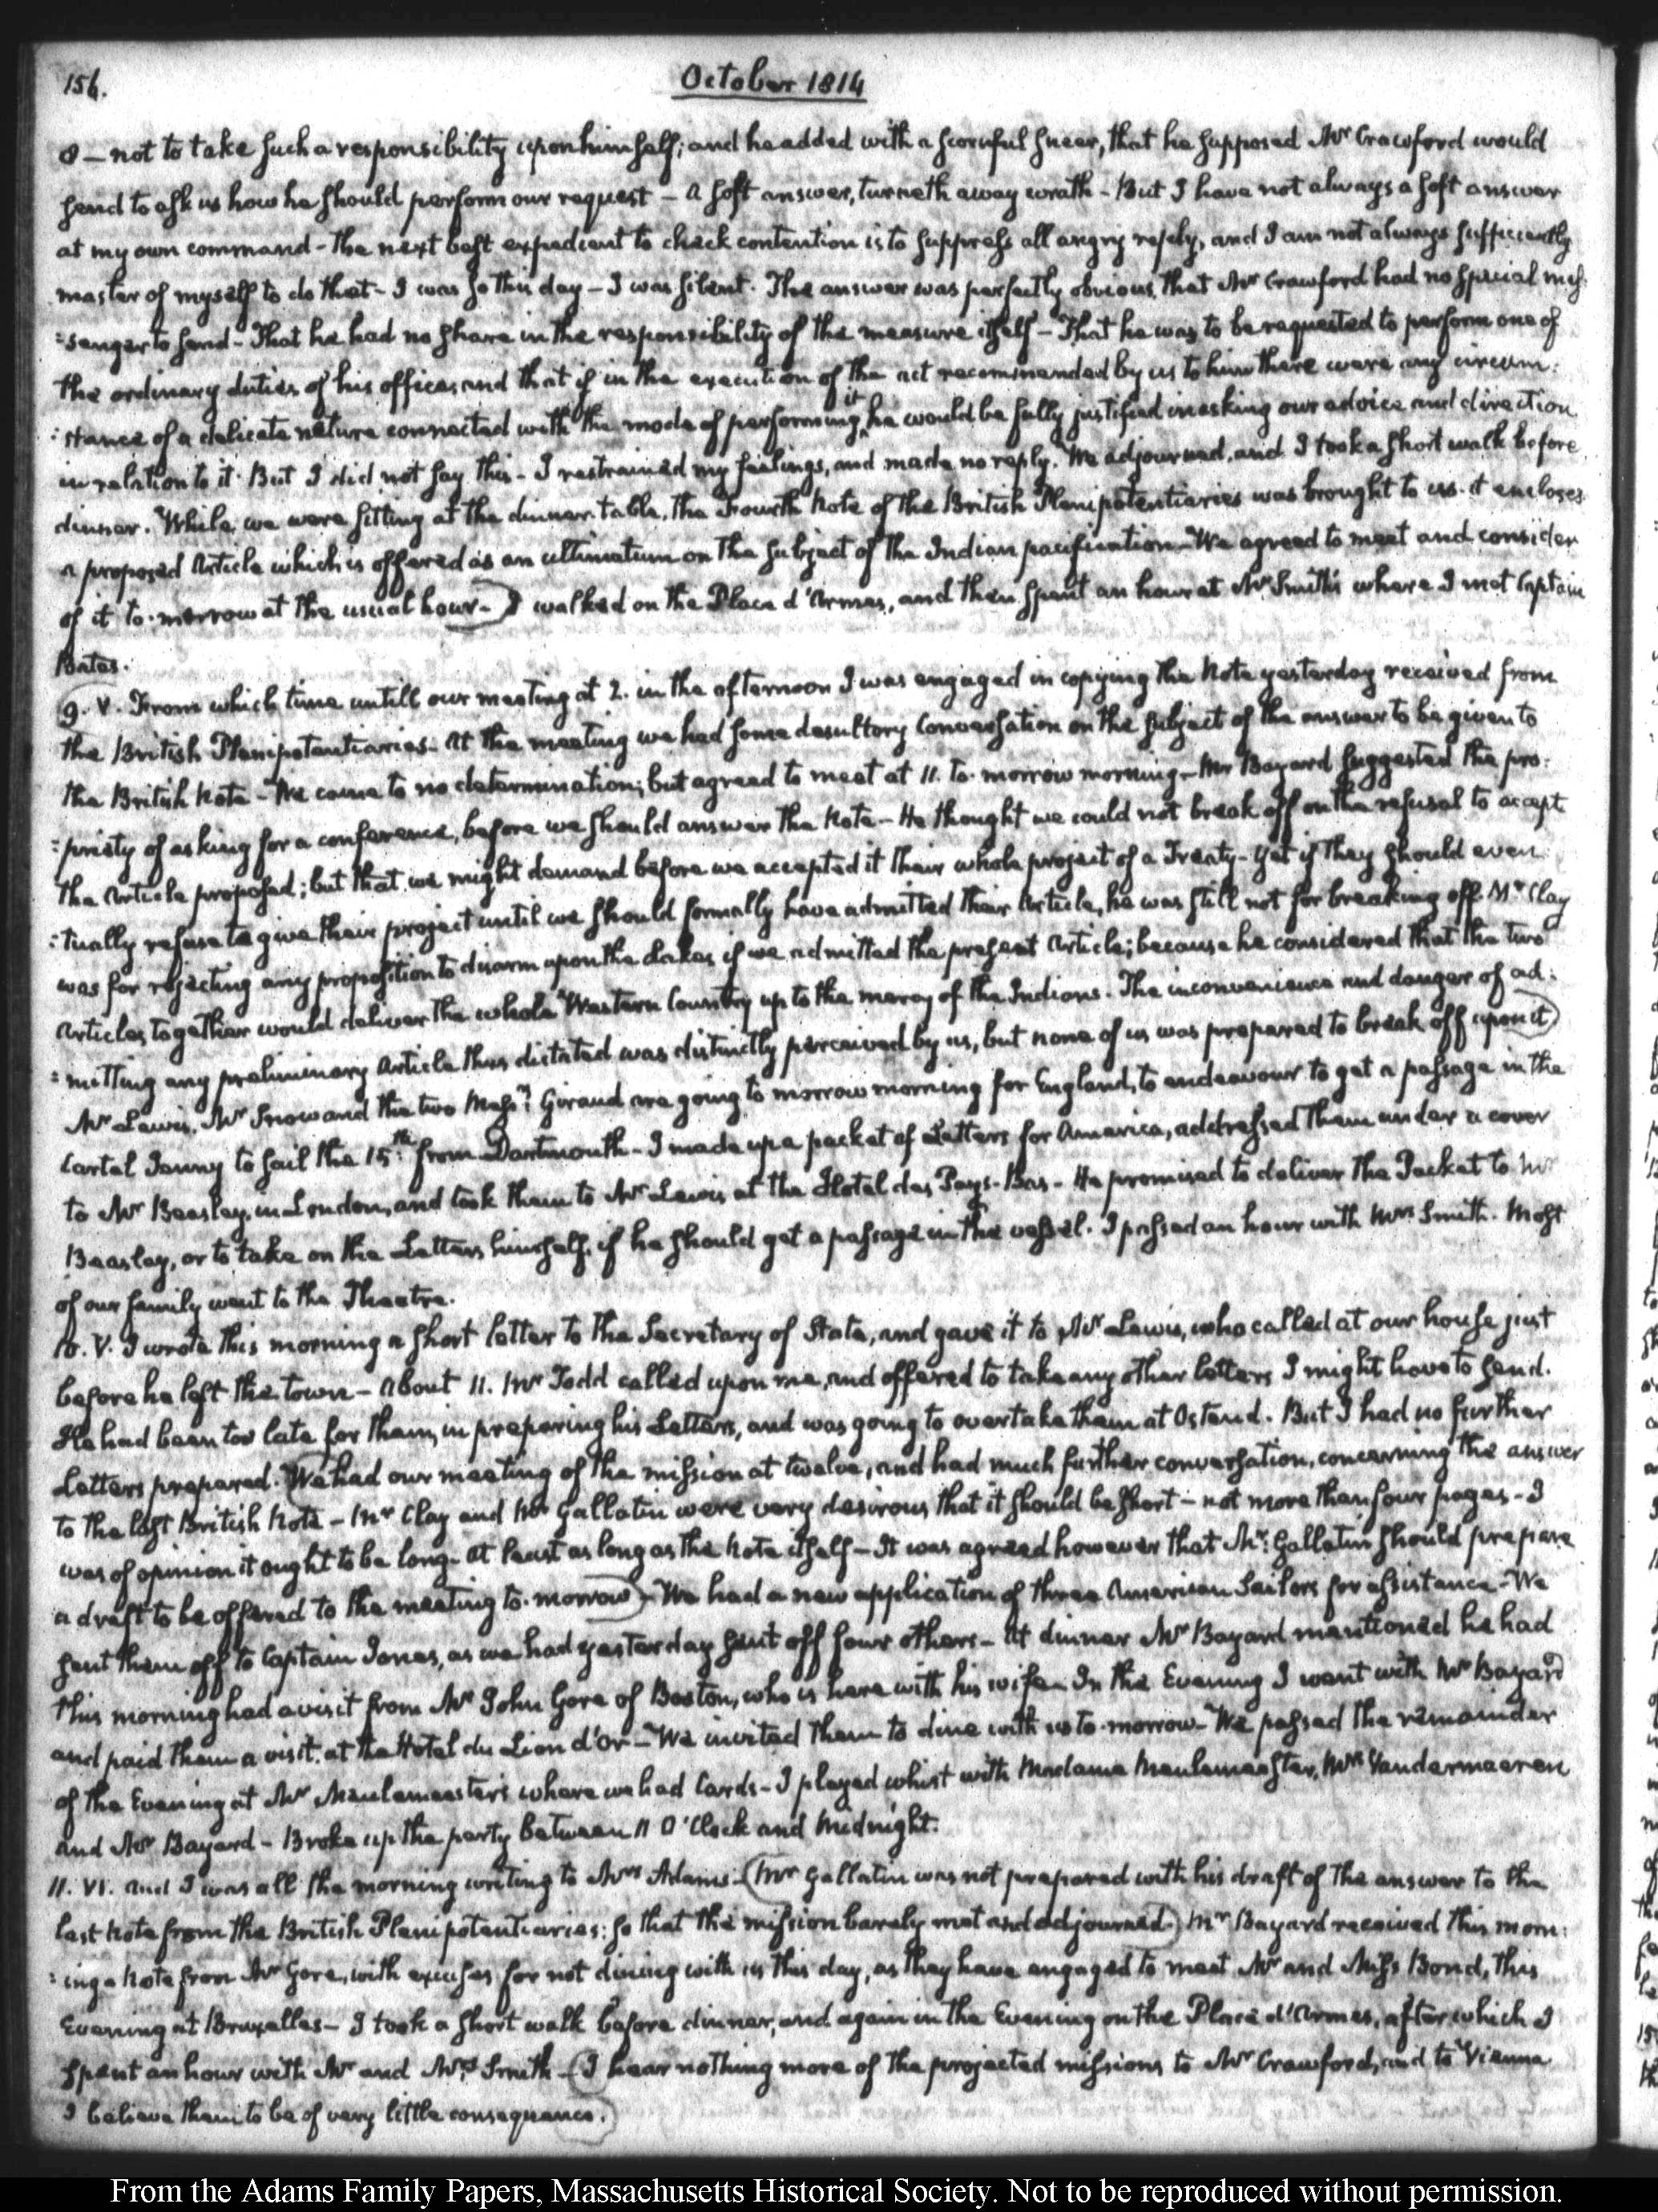 156.
October 1814
8 — not to take such a responsibility upon himself; and he added with a scornful sneer, that he supposed Mr Crawford would
send to ask us how he should perform our request — a soft answer, turneth away wrath — But I have not always a soft answer
at my own command — The next best expedient to check contention is to suppress all angry reply, and I am not always sufficiently
master of myself to do that — I was so this day — I was silent. The answer was perfectly obvious, that Mr Crawford had no special mes-
:senger to send — That he had no share in the responsibility of the measure itself — That he was to be requested to perform one of
the ordinary duties of his office; and that if in the execution of the act recommended by us to him there were any circum:
:stances of a delicate nature connected with the mode of performing it, he would be fully justified in asking our advice and direction
in relation to it. But I did not say this — I restrained my feelings, and made no reply. We adjourned, and I took a short walk before
dinner. While we were sitting at the dinner-table, the Fourth Note of the British Plenipotentiaries was brought to us. it encloses
a proposed Article which is offered as an ultimatum on the subject of the Indian pacification — We agreed to meet and consider
of it to-morrow at the usual hour — I walked on the Place d'Armes, and then spent an hour at Mr Smith's where I met Captain
Bates.
9. V. From which time untill our meeting at 2. in the afternoon I was engaged in copying the Note yesterday received from
the British Plenipotentiaries — At the meeting we had some desultory Conversation on the subject of the answer to be given to
the British Note — We came to no determination; but agreed to meet at 11. to-morrow morning — Mr Bayard suggested the pro:
:priety of asking for a conference, before we should answer the Note — He thought we could not break off on the refusal to accept
the Article proposed; but that we might demand before we accepted it their whole project of a Treaty — yet if they should even:
:tually refuse to give their project until we should formally have admitted their Article, he was still not for breaking off. Mr Clay
was for rejecting any proposition to disarm upon the Lakes if we admitted the present Article; because he considered that the two
Articles together would deliver the whole Western Country up to the mercy of the Indians. The inconvenience and danger of ad:
:mitting any preliminary Article thus dictated was distinctly perceived by us, but none of us was prepared to break off upon it)
Mr Lewis, Mr Snow and the two Messrs Giraud are going to morrow morning for England, to endeavour to get a passage in the
Cartel Jenny to sail the 15th from Dartmouth — I made up a packet of Letters for America, addressed them under a cover
to Mr Beasley, in London, and took them to Mr Lewis at the Hotel des Pays-Bas — He promised to deliver the Packet to Mr
Beasley, or to take on the Letters himself, if he should get a passage in the vessel. I passed an hour with Mrs Smith. Most
of our family went to the Theatre.
10. V. I wrote this morning a short letter to the Secretary of State, and gave it to Mr Lewis, who called at our house just
before he left the town — About 11. Mr Todd called upon me, and offered to take any other letters I might have to send.
He had been too late for them, in preparing his Letters, and was going to overtake them at Ostend. But I had no further
Letters prepared. (We had our meeting of the mission at twelve, and had much further conversation, concerning the answer
to the last British Note — Mr Clay and Mr Gallatin were very desirous that it should be short — not more than four pages — I
was of opinion it ought to be long — at least as long as the Note itself — It was agreed however that Mr Gallatin should prepare
a draft to be offered to the meeting to-morrow) — We had a new application of three American Sailors for assistance — We
sent them off to Captain Jones, as we had yesterday sent off four others — At dinner Mr Bayard mentioned he had
this morning had a visit from Mr John Gore of Boston, who is here with his wife — In the Evening I went with Mr Bayard
and paid them a visit, at the Hotel du Lion d'or — We invited them to dine with us to-morrow — We passed the remainder
of the Evening at Mr Meulemeester's where we had Cards — I played whist with Madame Meulemeester, Mrs Vandermaeren
and Mr Bayard — Broke up the party between 11 O'Clock and Midnight.
11. VI. and I was all the morning writing to Mrs Adams — (Mr Gallatin was not prepared with his draft of the answer to the
last Note from the British Plenipotentiaries: so that the mission barely met and adjourned.) Mr Bayard received this morn:
:ing a Note from Mr Gore, with excuses for not dining with us this day, as they have engaged to meet Mr and Miss Bond, this
Evening at Bruxelles — I took a short walk before dinner, and again in the Evening on the Place d'Armes, after which I
spent an hour with Mr and Mrs Smith — (I hear nothing more of the projected missions to Mr Crawford, and to Vienna
I believe them to be of very little consequence.)
From the Adams Family Papers, Massachusetts Historical Society. Not to be reproduced without permission.